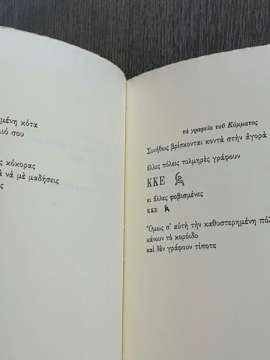 μένη κότα
λιό σου
ς κόκορας
ὰ νὰ μὲ μαδήσεις
ς
τὰ γραφεῖα τοῦ Κόμματος
Συνήθως βρίσκονται κοντὰ στὴν ἀγορὰ
ἄλλες πόλεις τολμηρὲς γράφουν
ΚΚΕ
κι ἄλλες φοβισμένες
ΚΚΕ
Ὅμως σ' αὐτὴ τὴν καθυστερημένη πόλ
κάνουν τὸ κορόιδο
καὶ δὲν γράφουν τίποτε